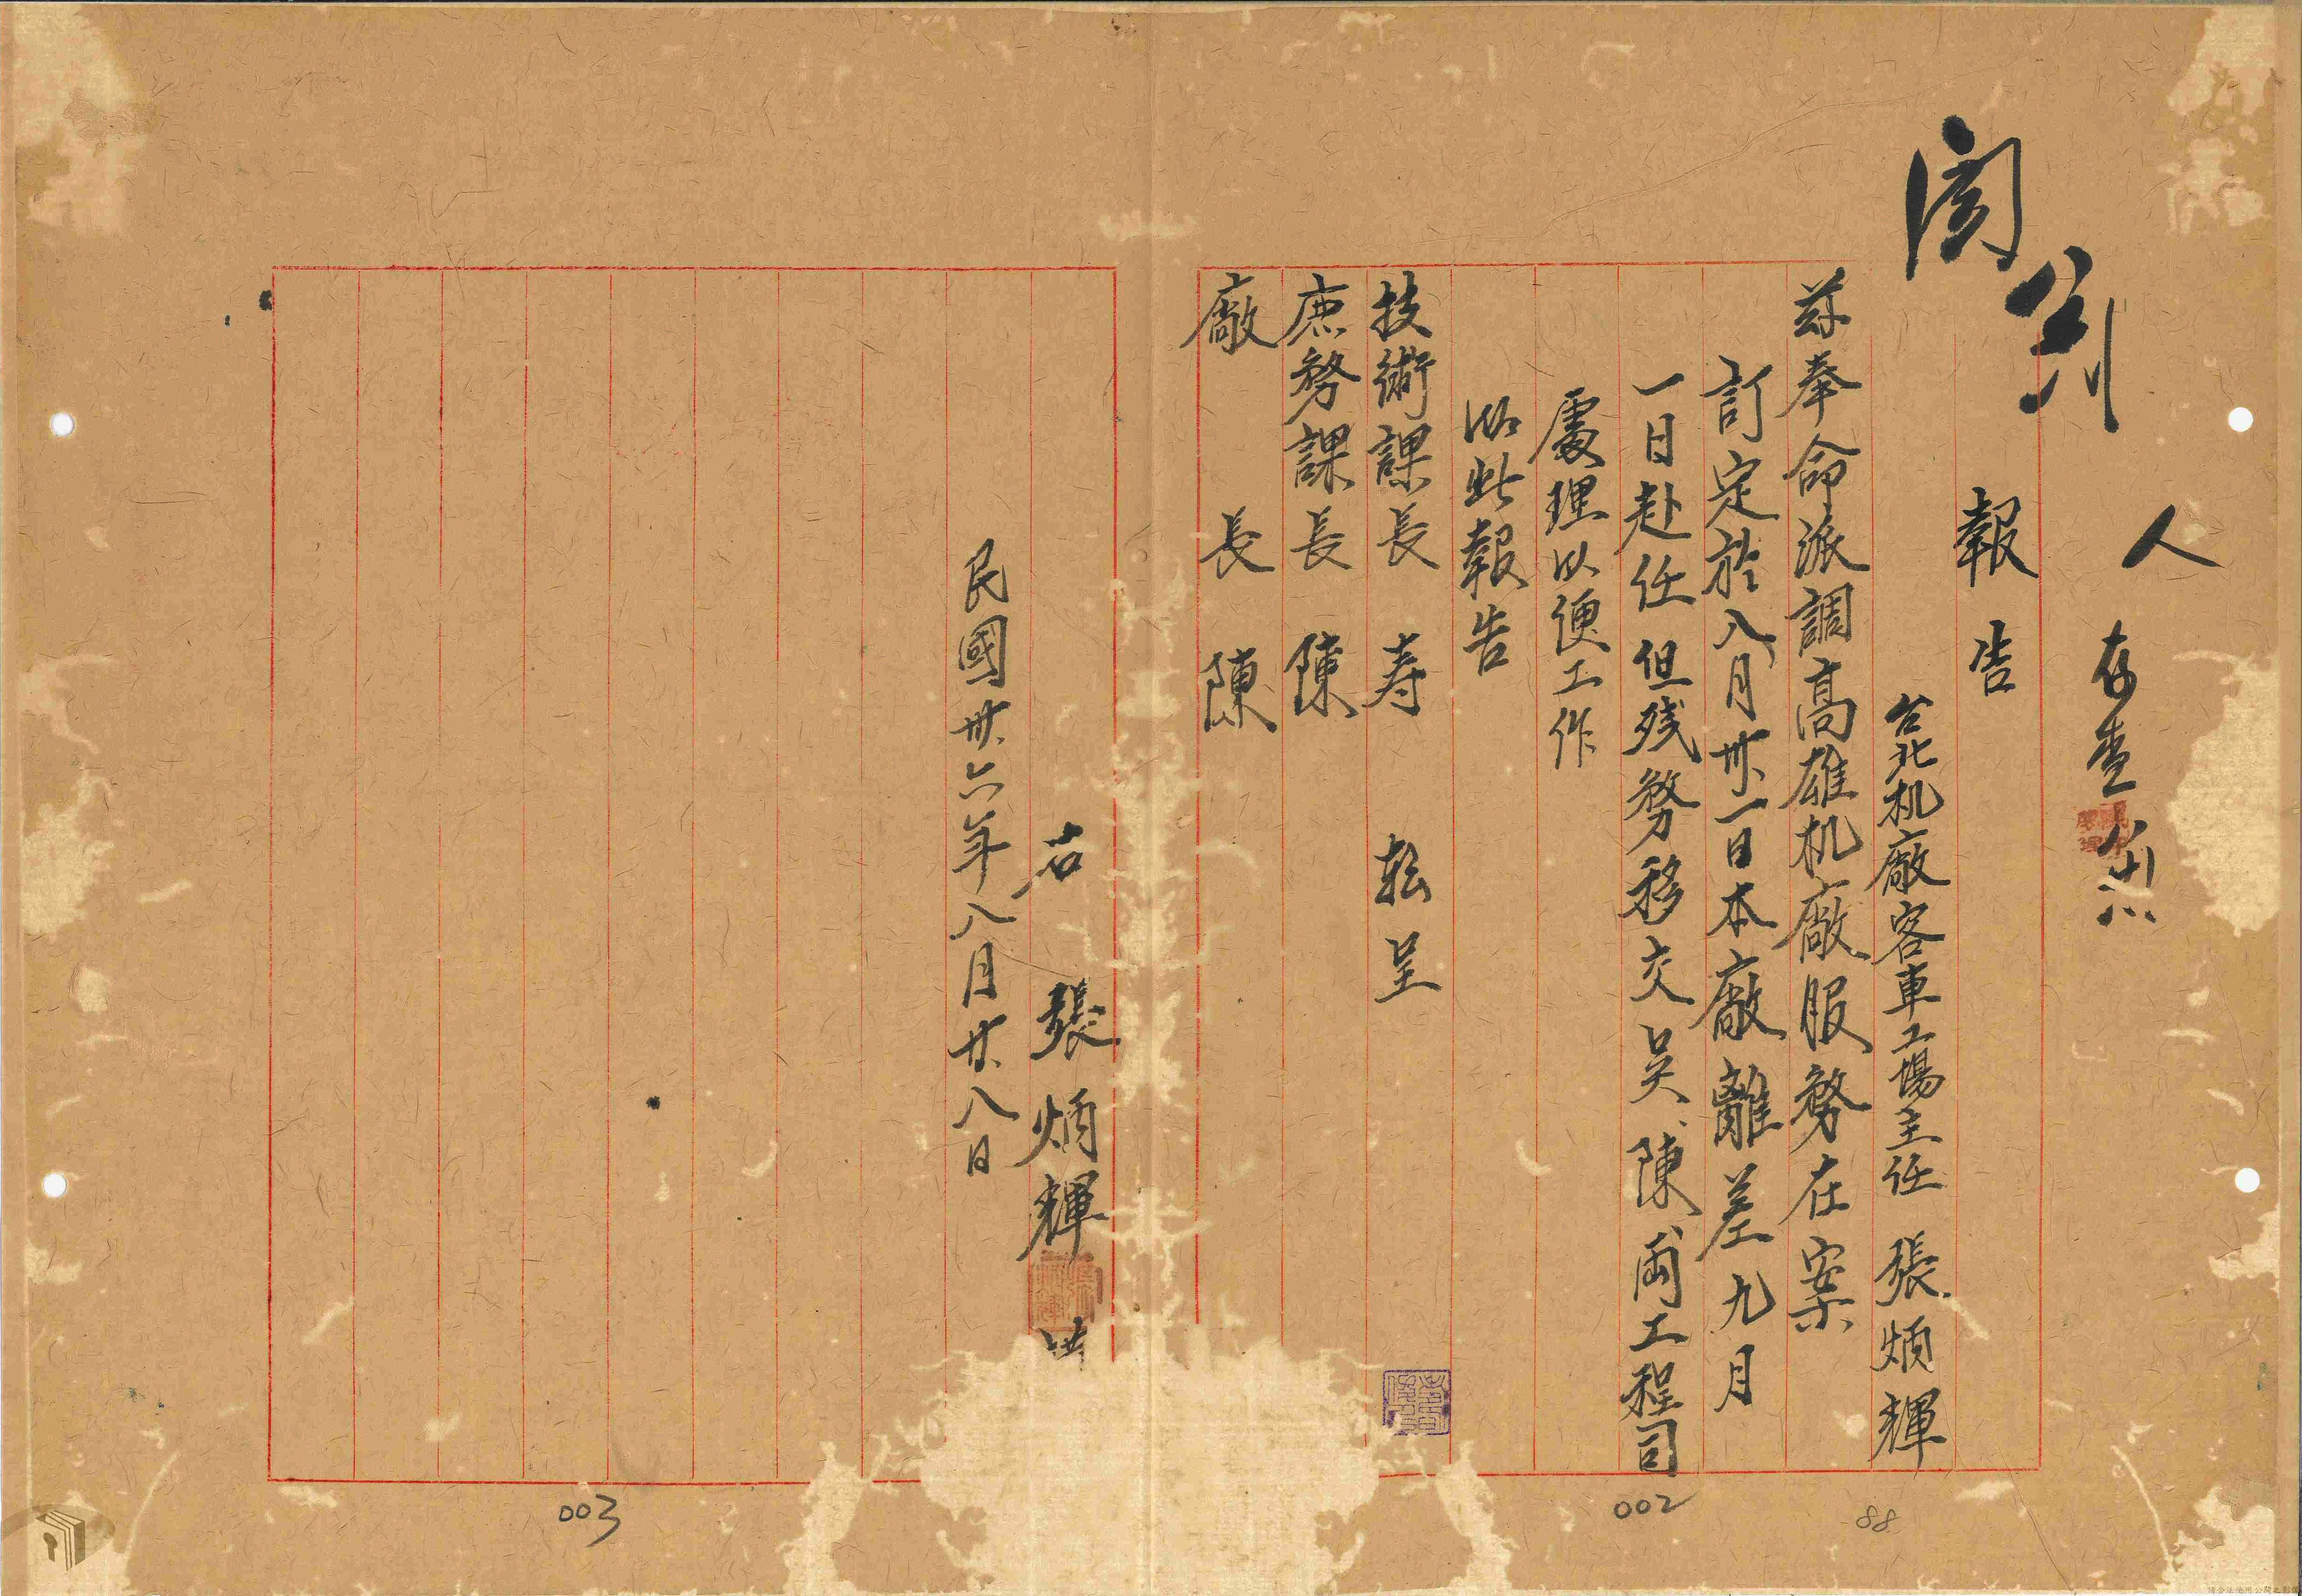 閱
人
存查
報告
台北机廠客車工場主任 張炳輝
茲奉命派調高雄机廠服務在案
訂定於八月卅一日本廠離差九月
一日赴任但残務移交吳、陳両工程司
處理以便工作
以此報告
技術課長 寿 転呈
庶務課長 陳
廠 長 陳
右 張炳輝
民國卅六年八月廿八日
88
002
003